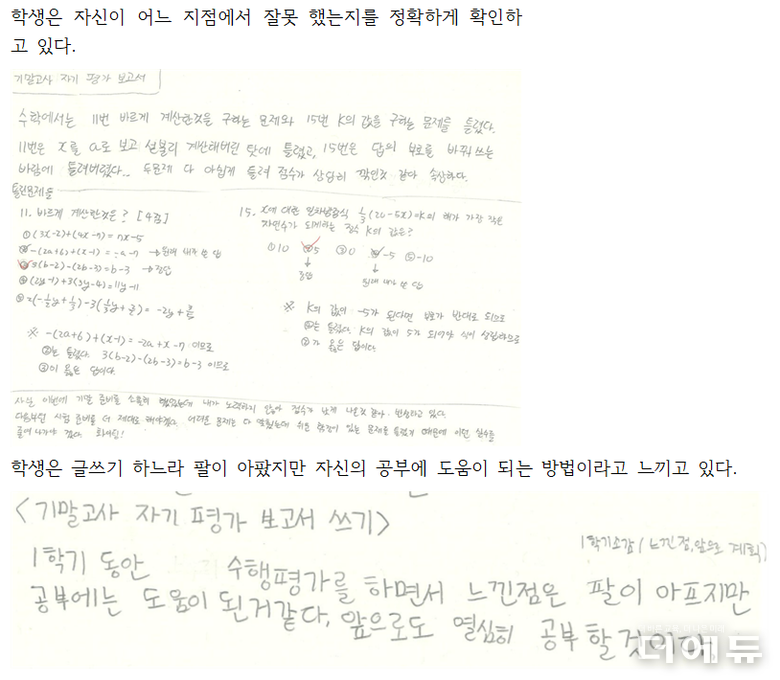 학생은 자신이 어느 지점에서 잘못 했는지를 정확하게 확인하
고 있다.
기말고사 자기 평가 보고서
수학에서는 11번 바르게 계산한것을 구하는 문제와 15번 K의 값을 구하는 문제를 틀렸다.
11번은 x를 a로 보고 섣불리 계산해버린 탓에 틀렸고, 15번은 답의 부호를 바꿔 쓰는
바람에 틀려버렸다.. 두문제 다 아쉽게 틀려 점수가 상당히 깎인것 같다 속상하다.
틀린문제들
11. 바르게 계산한것은? [4점]
① (3x-2)+(4x-7)=7x-5
② -(2a+6)+(x-1)=-a-7 → 원래 내가 쓴 답
③ 3(b-2)-(2b-3)=b-3 → 정답
④ (2y-1)+3(3y-4)=11y-11
※ -(2a+6)+(x-1)=-2a+x-7 이므로
②는 틀렸다. 3(b-2)-(2b-3)=b-3 이므로
③이 옳은 답이다.
15. x에 대한 일차방정식 의 해가 가장 작은
자연수가 되게하는 정수 K의 값은?
①10 ②5 ③0 ④-5 ⑤-10
정답
원래 내가 쓴 답
※ K의 값이 -5가 된다면 부호가 반대로 되므로
④는 틀렸다. K의 값이 5가 되어야 식이 성립하므로
②가 옳은 답이다.
사실 이번에 기말 준비를 소홀히 했었는데 내가 노력하지 않아 점수가 낮게 나온것 같아 반성하고 있다.
다음부턴 시험 준비를 더 제대로 해야겠다. 어려운 문제는 다 맞혔는데 쉬운 문제를 틀렸기 때문에 이런 실수를
줄여 나가야 겠다. 화이팅!
학생은 글쓰기 하느라 팔이 아팠지만 자신의 공부에 도움이 되는 방법이라고 느끼고 있다.
<기말고사 자기 평가 보고서 쓰기>
1학기소감(느낀점, 앞으로 계획)
1학기 동안 수행평가를 하면서 느낀점은 팔이 아프지만
공부에는 도움이 된거같다. 앞으로도 열심히 공부 할 것이다.
더에듀